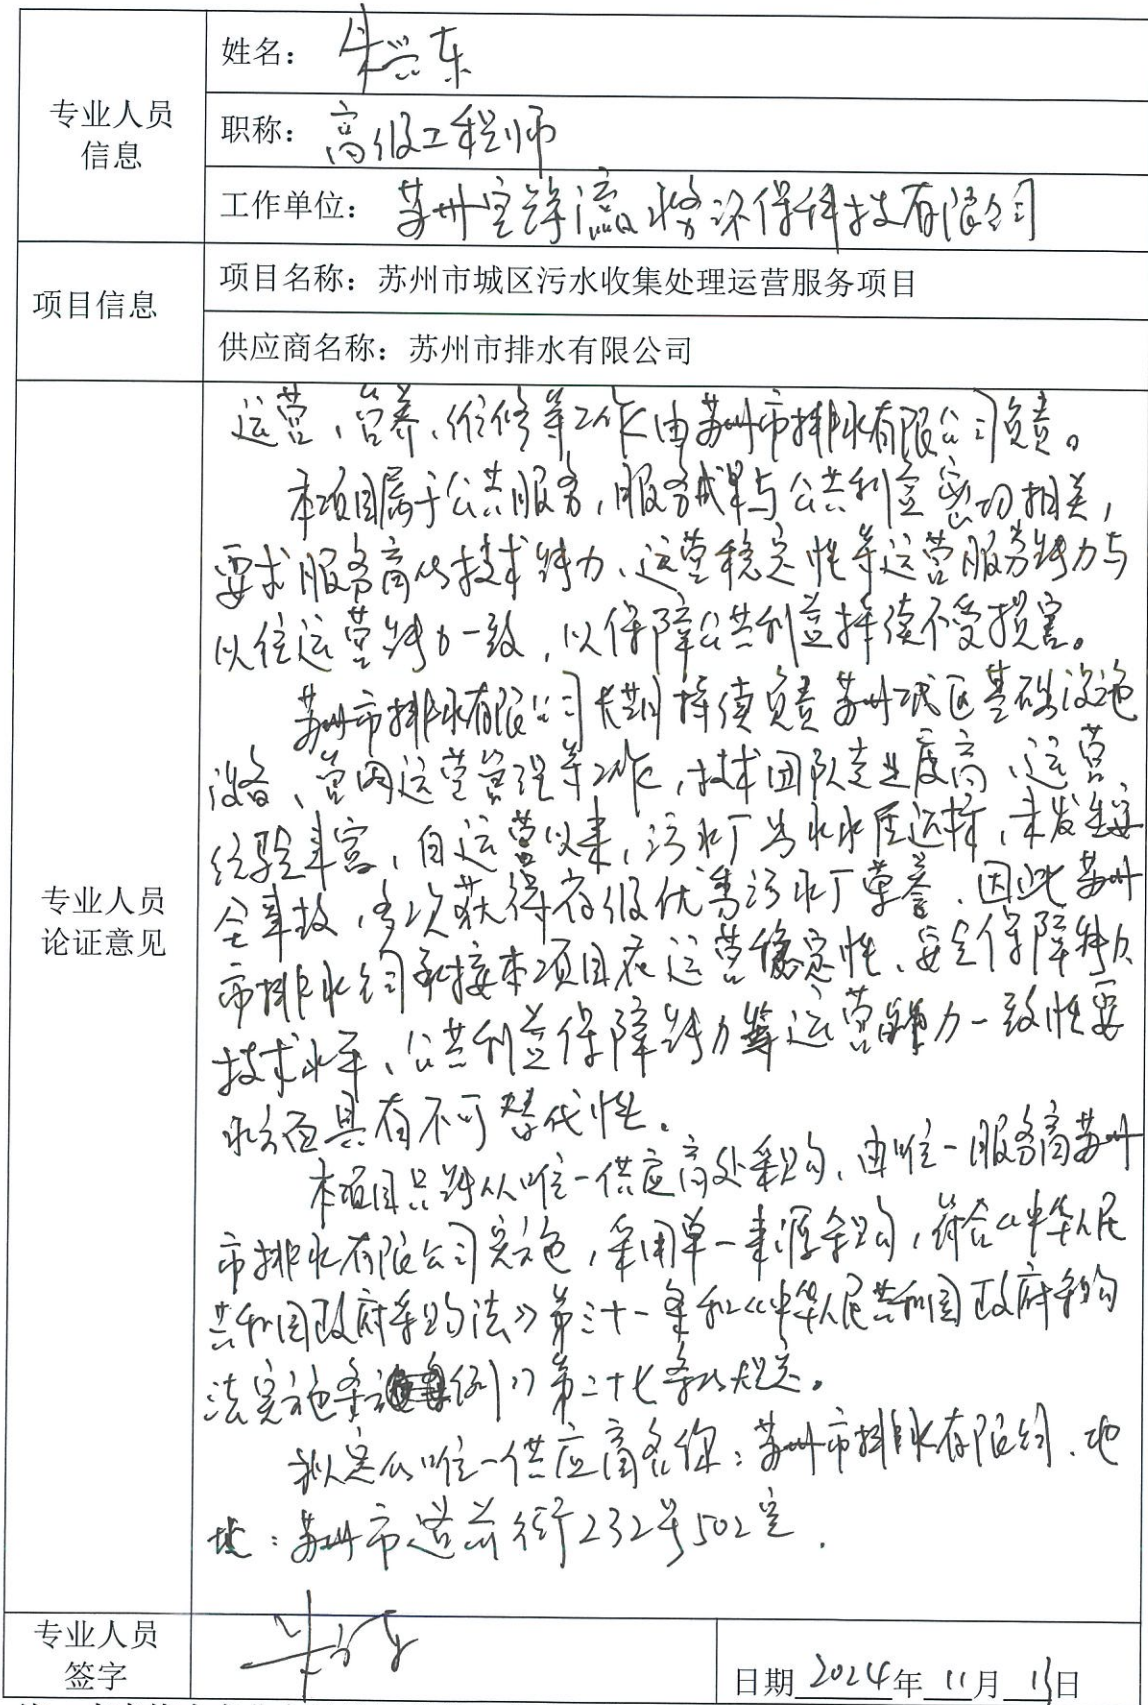 专业人员
信息
姓名：朱兴东
职称：高级工程师
工作单位：苏州宝锋温水务环保科技有限公司
项目信息
项目名称：苏州市城区污水收集处理运营服务项目
供应商名称：苏州市排水有限公司
专业人员
论证意见
运营、管养、维修等工作由苏州市排水有限公司负责。
本项目属于公共服务，服务成果与公共利益密切相关，
要求服务商的技术能力、运营稳定性等运营服务能力与
以往运营能力一致，以保障公共利益持续不受损害。
苏州市排水有限公司长期持续负责苏州城区基础设施
设备、管网运营管理等工作，技术团队专业度高，运营
经验丰富，自运营以来，污水厂出水水质达标，未发生安
全事故，多次获得省级优秀污水厂荣誉，因此苏州
市排水公司承接本项目在运营稳定性、安全保障能力
技术水平、公共利益保障能力等运营能力一致性要
求方面具有不可替代性。
本项目只能从唯一供应商处采购，由唯一服务商苏州
市排水有限公司实施，采用单一来源采购，符合《中华人民
共和国政府采购法》第三十一条和《中华人民共和国政府采购
法实施条例》第二十七条的规定。
拟定的唯一供应商名称：苏州市排水有限公司、地
址：苏州市道前街232号502室．
专业人员
签字
日期 2024年 11月 13日